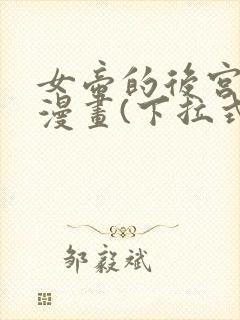 女帝的後宮
漫畫(下拉式
鄒毅斌